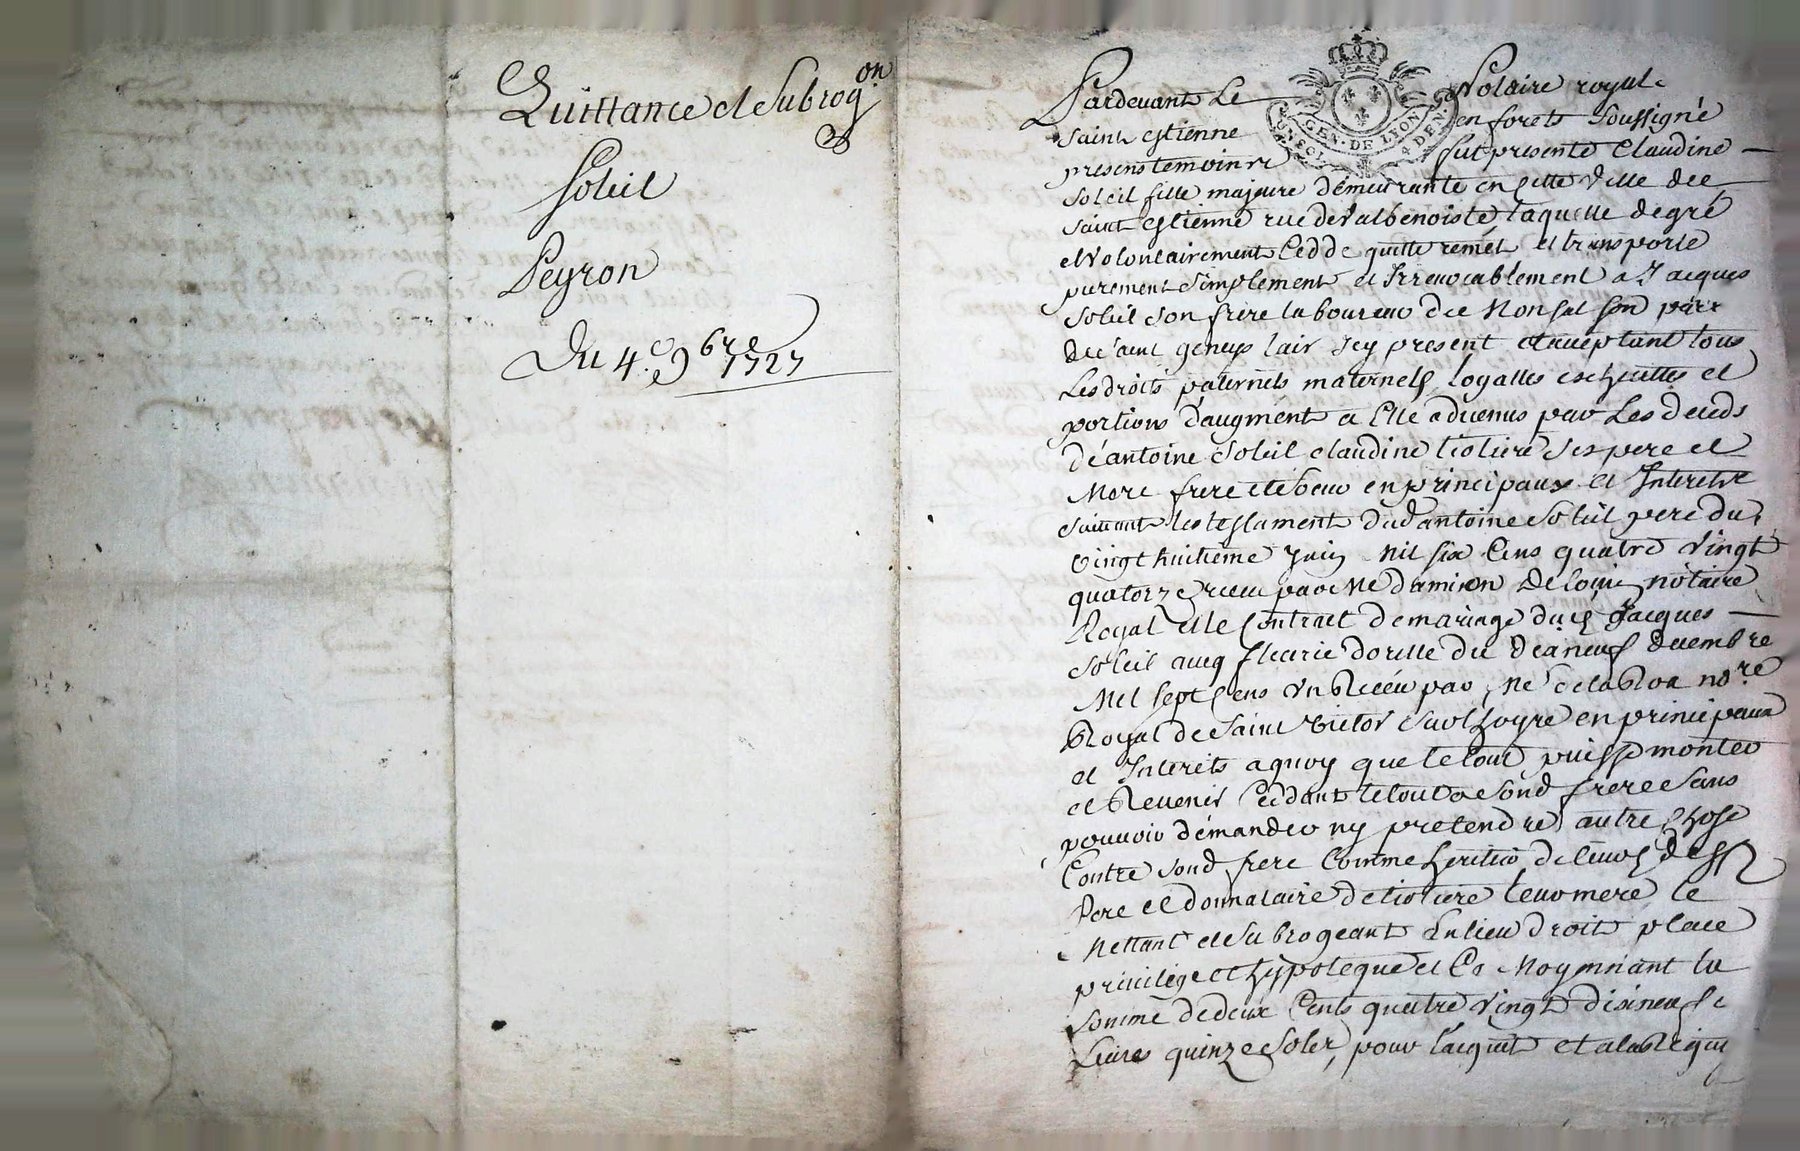 Quittance et Subrog.on
Soleil
Peyron
Du 4.e 9bre 1727
GEN. DE LYON
4 DEN.
Pardevant Le Notaire royal
Saint estienne en forets Soussigné
presens temoins fut presente Claudine
Soleil fille majeure démeurante en cette Ville de
Saint estienne rue de Valbenoiste laquelle de gré
et Volontairement Cedde quitte remet et transporte
purement Simplement et Irrevocablement a Jacques
Soleil Son frere laboureur de
present et acceptant tous
Les droits paternels maternels, Legalles escheuttes et
portions d'augment a Elle advenus par Les deceds
d'antoine Soleil claudine tiolière Ses pere et
Mere frere et Soeur en principaux et Interets
Suivant les testament dud antoine Soleil pere du
Vingt huitieme Juin Mil six Cens quatre Vingt
quatorze receu par Me damien notaire
Royal et le Contract de mariage dud Jacques
Soleil aveq fleurie du dixneuf decembre
Mil Sept Cens Un Receu par Me no.re
Royal de Saint Victor Sur Loyre en principaux
et Interets a quoy que le tout puisse monter
et Revenir Cedant le tout a Sond frere Sans
pouvoir démander ny pretendre autre Chose
Contre Sond frere Comme heritier de
Pere et donnataire de tioliere leur mere, le
Mettant et Subrogeant En lieu droit place
privilege et hypoteque et Ce Moyennant la
Somme de deux Cents quatre Vingt dixneuf
Livres quinze Sols, pour l'acquit et